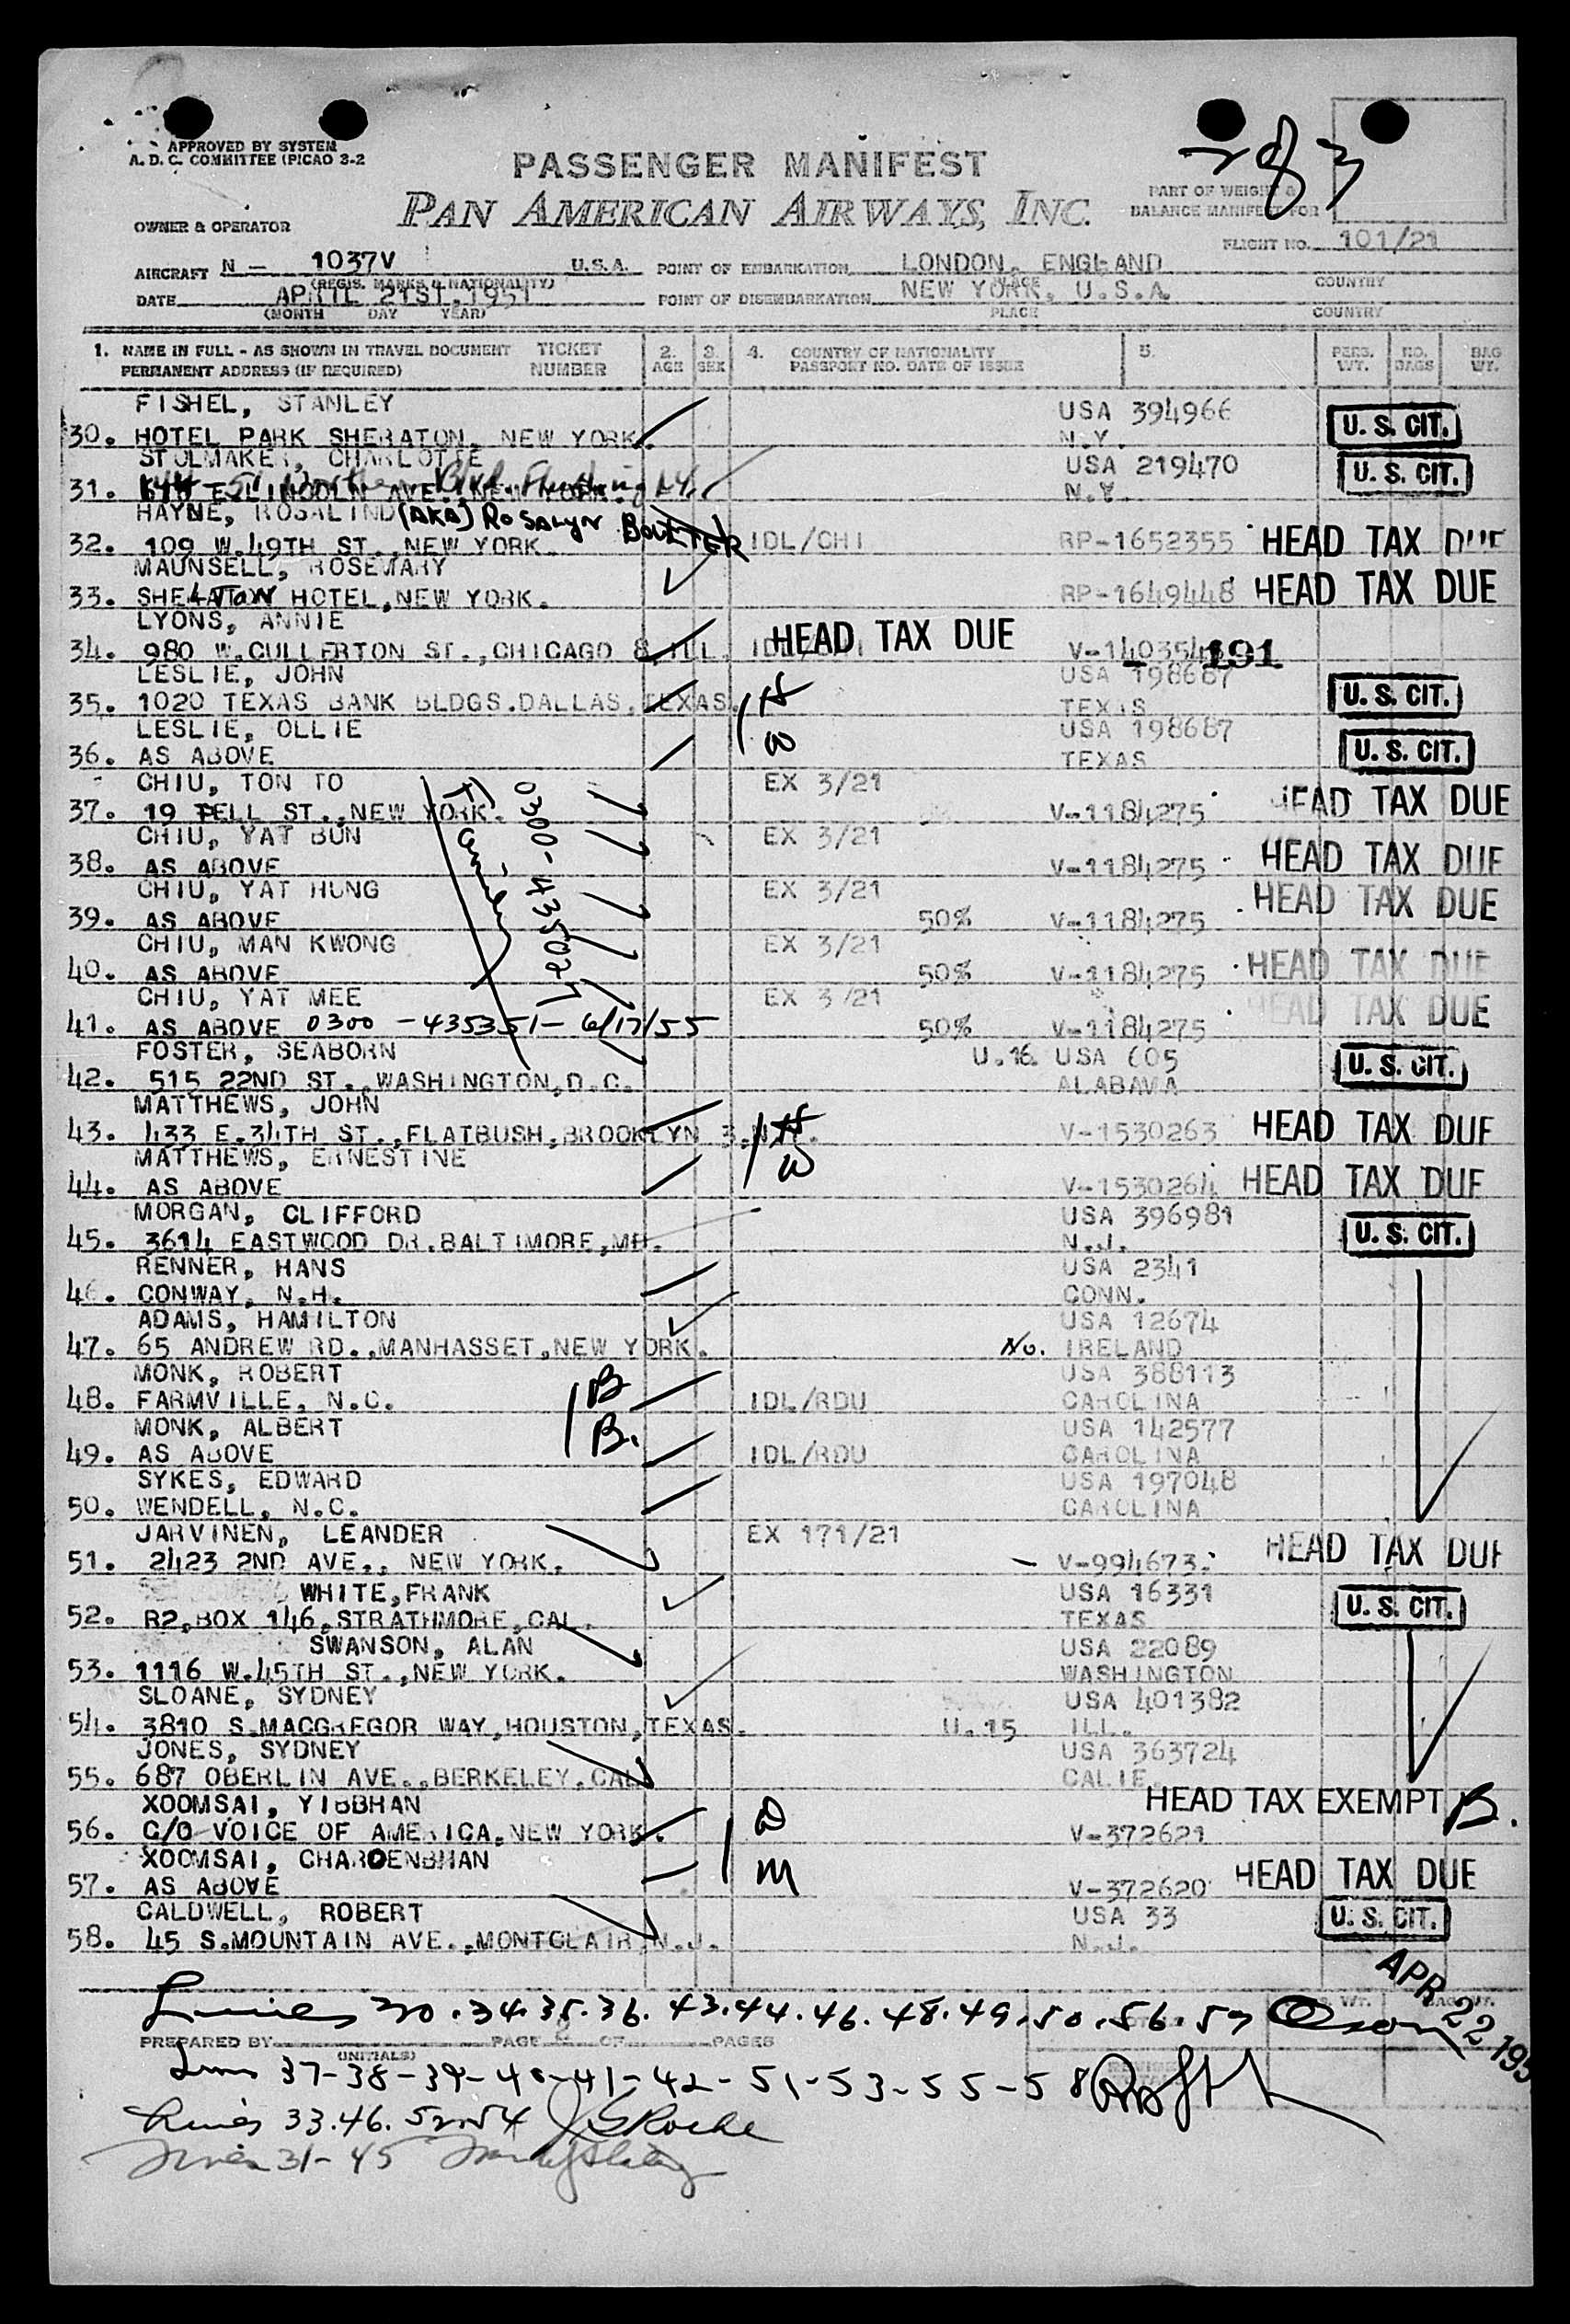 2 of 3
APPROVED BY SYSTEM
A. D. C. COMMITTEE (PICAO 3-2
PASSENGER MANIFEST
PAN AMERICAN AIRWAYS, INC.
PART OF WEIGHT &
BALANCE MANIFEST FOR
OWNER & OPERATOR
FLIGHT NO. 101/21
AIRCRAFT N - 1037V U.S.A. POINT OF EMBARKATION LONDON, ENGLAND
(REGIS. MARKS & NATIONALITY) PLACE COUNTRY
DATE APRIL 21ST, 1951 POINT OF DISEMBARKATION NEW YORK, U.S.A.
(MONTH DAY YEAR) PLACE COUNTRY
1. NAME IN FULL - AS SHOWN IN TRAVEL DOCUMENT TICKET 2. 3. 4. COUNTRY OF NATIONALITY 5. PERS. NO. BAG
PERMANENT ADDRESS (IF REQUIRED) NUMBER AGE SEX PASSPORT NO. DATE OF ISSUE WT. BAGS WT.
FISHEL, STANLEY USA 394966
30. HOTEL PARK SHERATON, NEW YORK. N.Y. U. S. CIT.
STOLMAKER, CHARLOTTE USA 219470
31. E. LINCOLN AVE., NEW YORK. Blvd. Flushing N.Y. N.Y. U. S. CIT.
HAYNE, ROSALIND (AKA) ROSALYN BOULTER
32. 109 W.49TH ST., NEW YORK. IDL/CHI RP-1652355 HEAD TAX DUE
MAUNSELL, ROSEMARY
33. SHERATON HOTEL, NEW YORK. RP-1649448 HEAD TAX DUE
LYONS, ANNIE HEAD TAX DUE
34. 980 W.CULLERTON ST., CHICAGO 8, ILL. 191
LESLIE, JOHN USA 198687
35. 1020 TEXAS BANK BLDGS. DALLAS, TEXAS. H TEXAS U. S. CIT.
LESLIE, OLLIE USA 198687
36. AS ABOVE W TEXAS U. S. CIT.
CHIU, TON TO EX 3/21
37. 19 PELL ST., NEW YORK. V-1184275 HEAD TAX DUE
CHIU, YAT BUN EX 3/21
38. AS ABOVE V-1184275 HEAD TAX DUE
CHIU, YAT HUNG EX 3/21
39. AS ABOVE 50% V-1184275 HEAD TAX DUE
CHIU, MAN KWONG EX 3/21
40. AS ABOVE 50% V-1184275 HEAD TAX DUE
CHIU, YAT MEE EX 3/21
41. AS ABOVE 0300 - 435351 - 6/17/55 50% V-1184275 HEAD TAX DUE
Family
0300-435027
FOSTER, SEABORN U.16. USA 605
42. 515 22ND ST., WASHINGTON, D.C. ALABAMA U. S. CIT.
MATTHEWS, JOHN
43. 433 E.34TH ST., FLATBUSH, BROOKLYN 3, N.Y. H V-1530263 HEAD TAX DUE
MATTHEWS, ERNESTINE
44. AS ABOVE W V-1530264 HEAD TAX DUE
MORGAN, CLIFFORD USA 396981
45. 3614 EASTWOOD DR. BALTIMORE, MD. N.J. U. S. CIT.
RENNER, HANS USA 2341
46. CONWAY, N.H. CONN.
ADAMS, HAMILTON USA 12674
47. 65 ANDREW RD., MANHASSET, NEW YORK. No. IRELAND
MONK, ROBERT USA 388113
48. FARMVILLE, N.C. B IDL/RDU CAROLINA
MONK, ALBERT USA 142577
49. AS ABOVE B. IDL/RDU CAROLINA
SYKES, EDWARD USA 197048
50. WENDELL, N.C. CAROLINA
JARVINEN, LEANDER EX 171/21
51. 2423 2ND AVE., NEW YORK. V-994673 HEAD TAX DUE
WHITE, FRANK USA 16331
52. R2, BOX 146, STRATHMORE, CAL. TEXAS U. S. CIT.
SWANSON, ALAN USA 22089
53. 1116 W.45TH ST., NEW YORK. WASHINGTON
SLOANE, SYDNEY USA 401382
54. 3810 S.MACGREGOR WAY, HOUSTON, TEXAS. U.15 ILL.
JONES, SYDNEY USA 363724
55. 687 OBERLIN AVE., BERKELEY, CAL CALIF.
XOOMSAI, YIBBHAN D HEAD TAX EXEMPT B.
56. C/O VOICE OF AMERICA, NEW YORK. V-372621
XOOMSAI, CHAROENBHAN M
57. AS ABOVE V-372620 HEAD TAX DUE
CALDWELL, ROBERT USA 33
58. 45 S.MOUNTAIN AVE., MONTCLAIR, N.J. N.J. U. S. CIT.
APR 22 195
Lines 30.34.35.36.43.44.46.48.49.50.56.57
PREPARED BY PAGE 2 OF PAGES
(INITIALS)
Lines 37-38-39-40-41-42-51-53-55-58
Lines 33.46.52.54
Lines 31-45